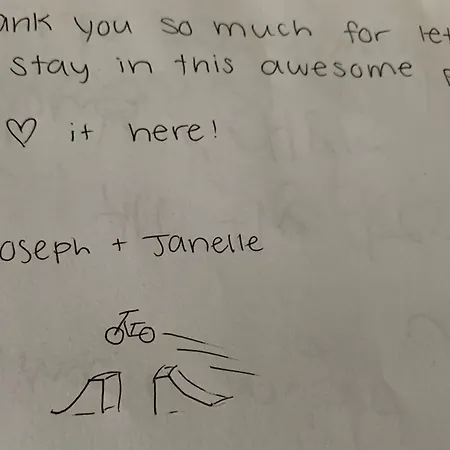 ank you so much for let
stay in this awesome
♡ it here!
oseph + Janelle